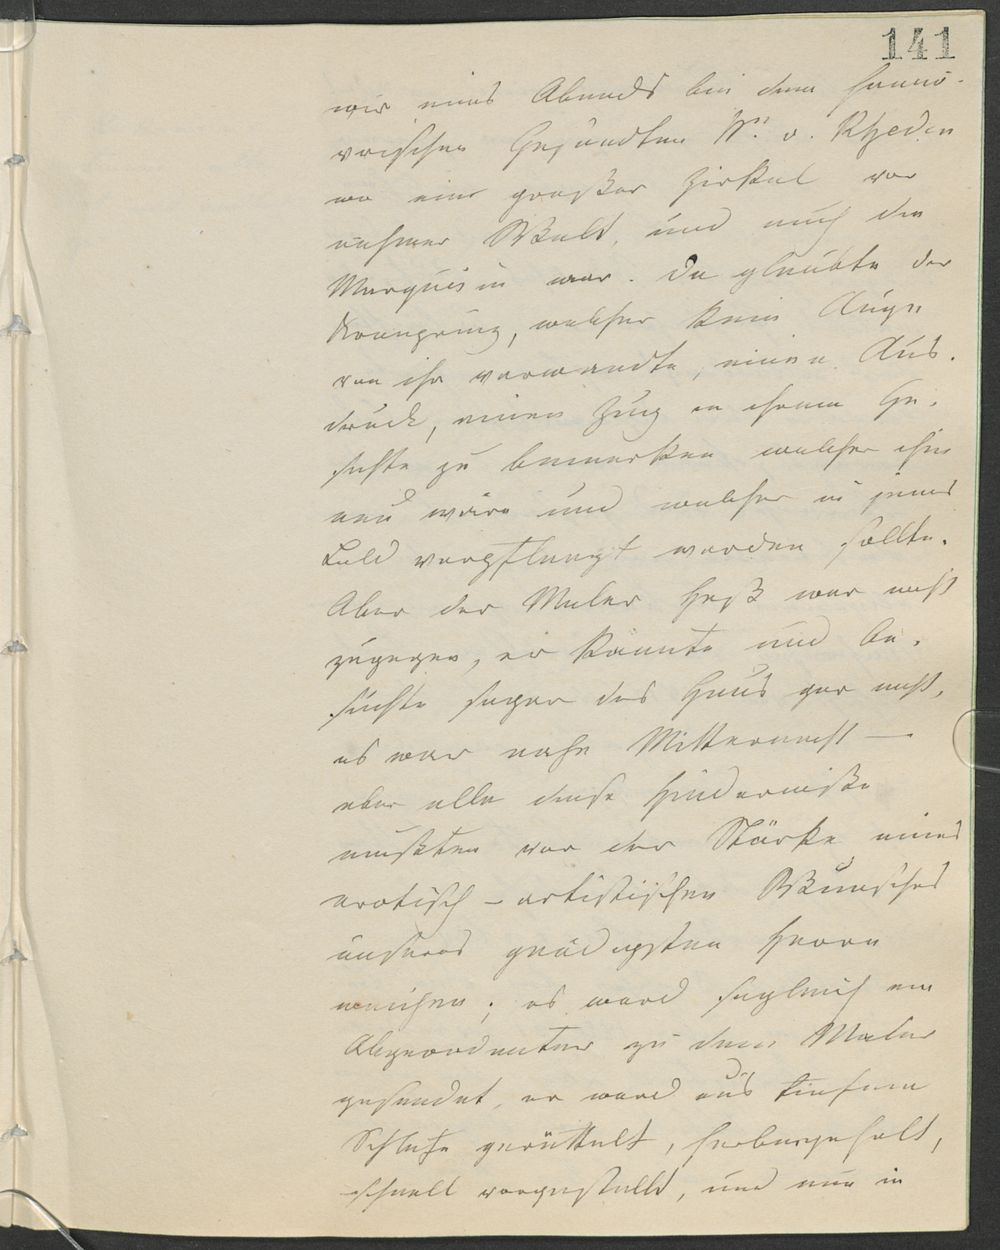 141
wir eines Abends bei dem hannö-
vrischen Gesandten H. v. Rheden
wo eine großer Zirkel vor
nehmer Welt, und auch die
Marquisin war. Da glaubte der
Kronprinz, welcher kein Auge
von ihr verwandte, einen Aus-
druck, einen Zug in ihrem Ge-
sichte zu bemerken welcher ihm
neu wäre und welcher in jenes
Bild verpflanzt werden sollte.
Aber der Maler Heß war nicht
zugegen, er kannte und be-
suchte sogar das Haus gar nicht,
es war nahe Mitternacht —
aber alle diese Hinderniße
mußten vor der Stärke eines
erotisch-artistischen Wunsches
unseres gnädigsten Herrn
weichen; es ward sogleich ein
Abgeordneter zu dem Maler
gesendet, er ward aus tiefem
Schlafe gerüttelt, herbeygeholt,
schnell vorgestellt, und nun in